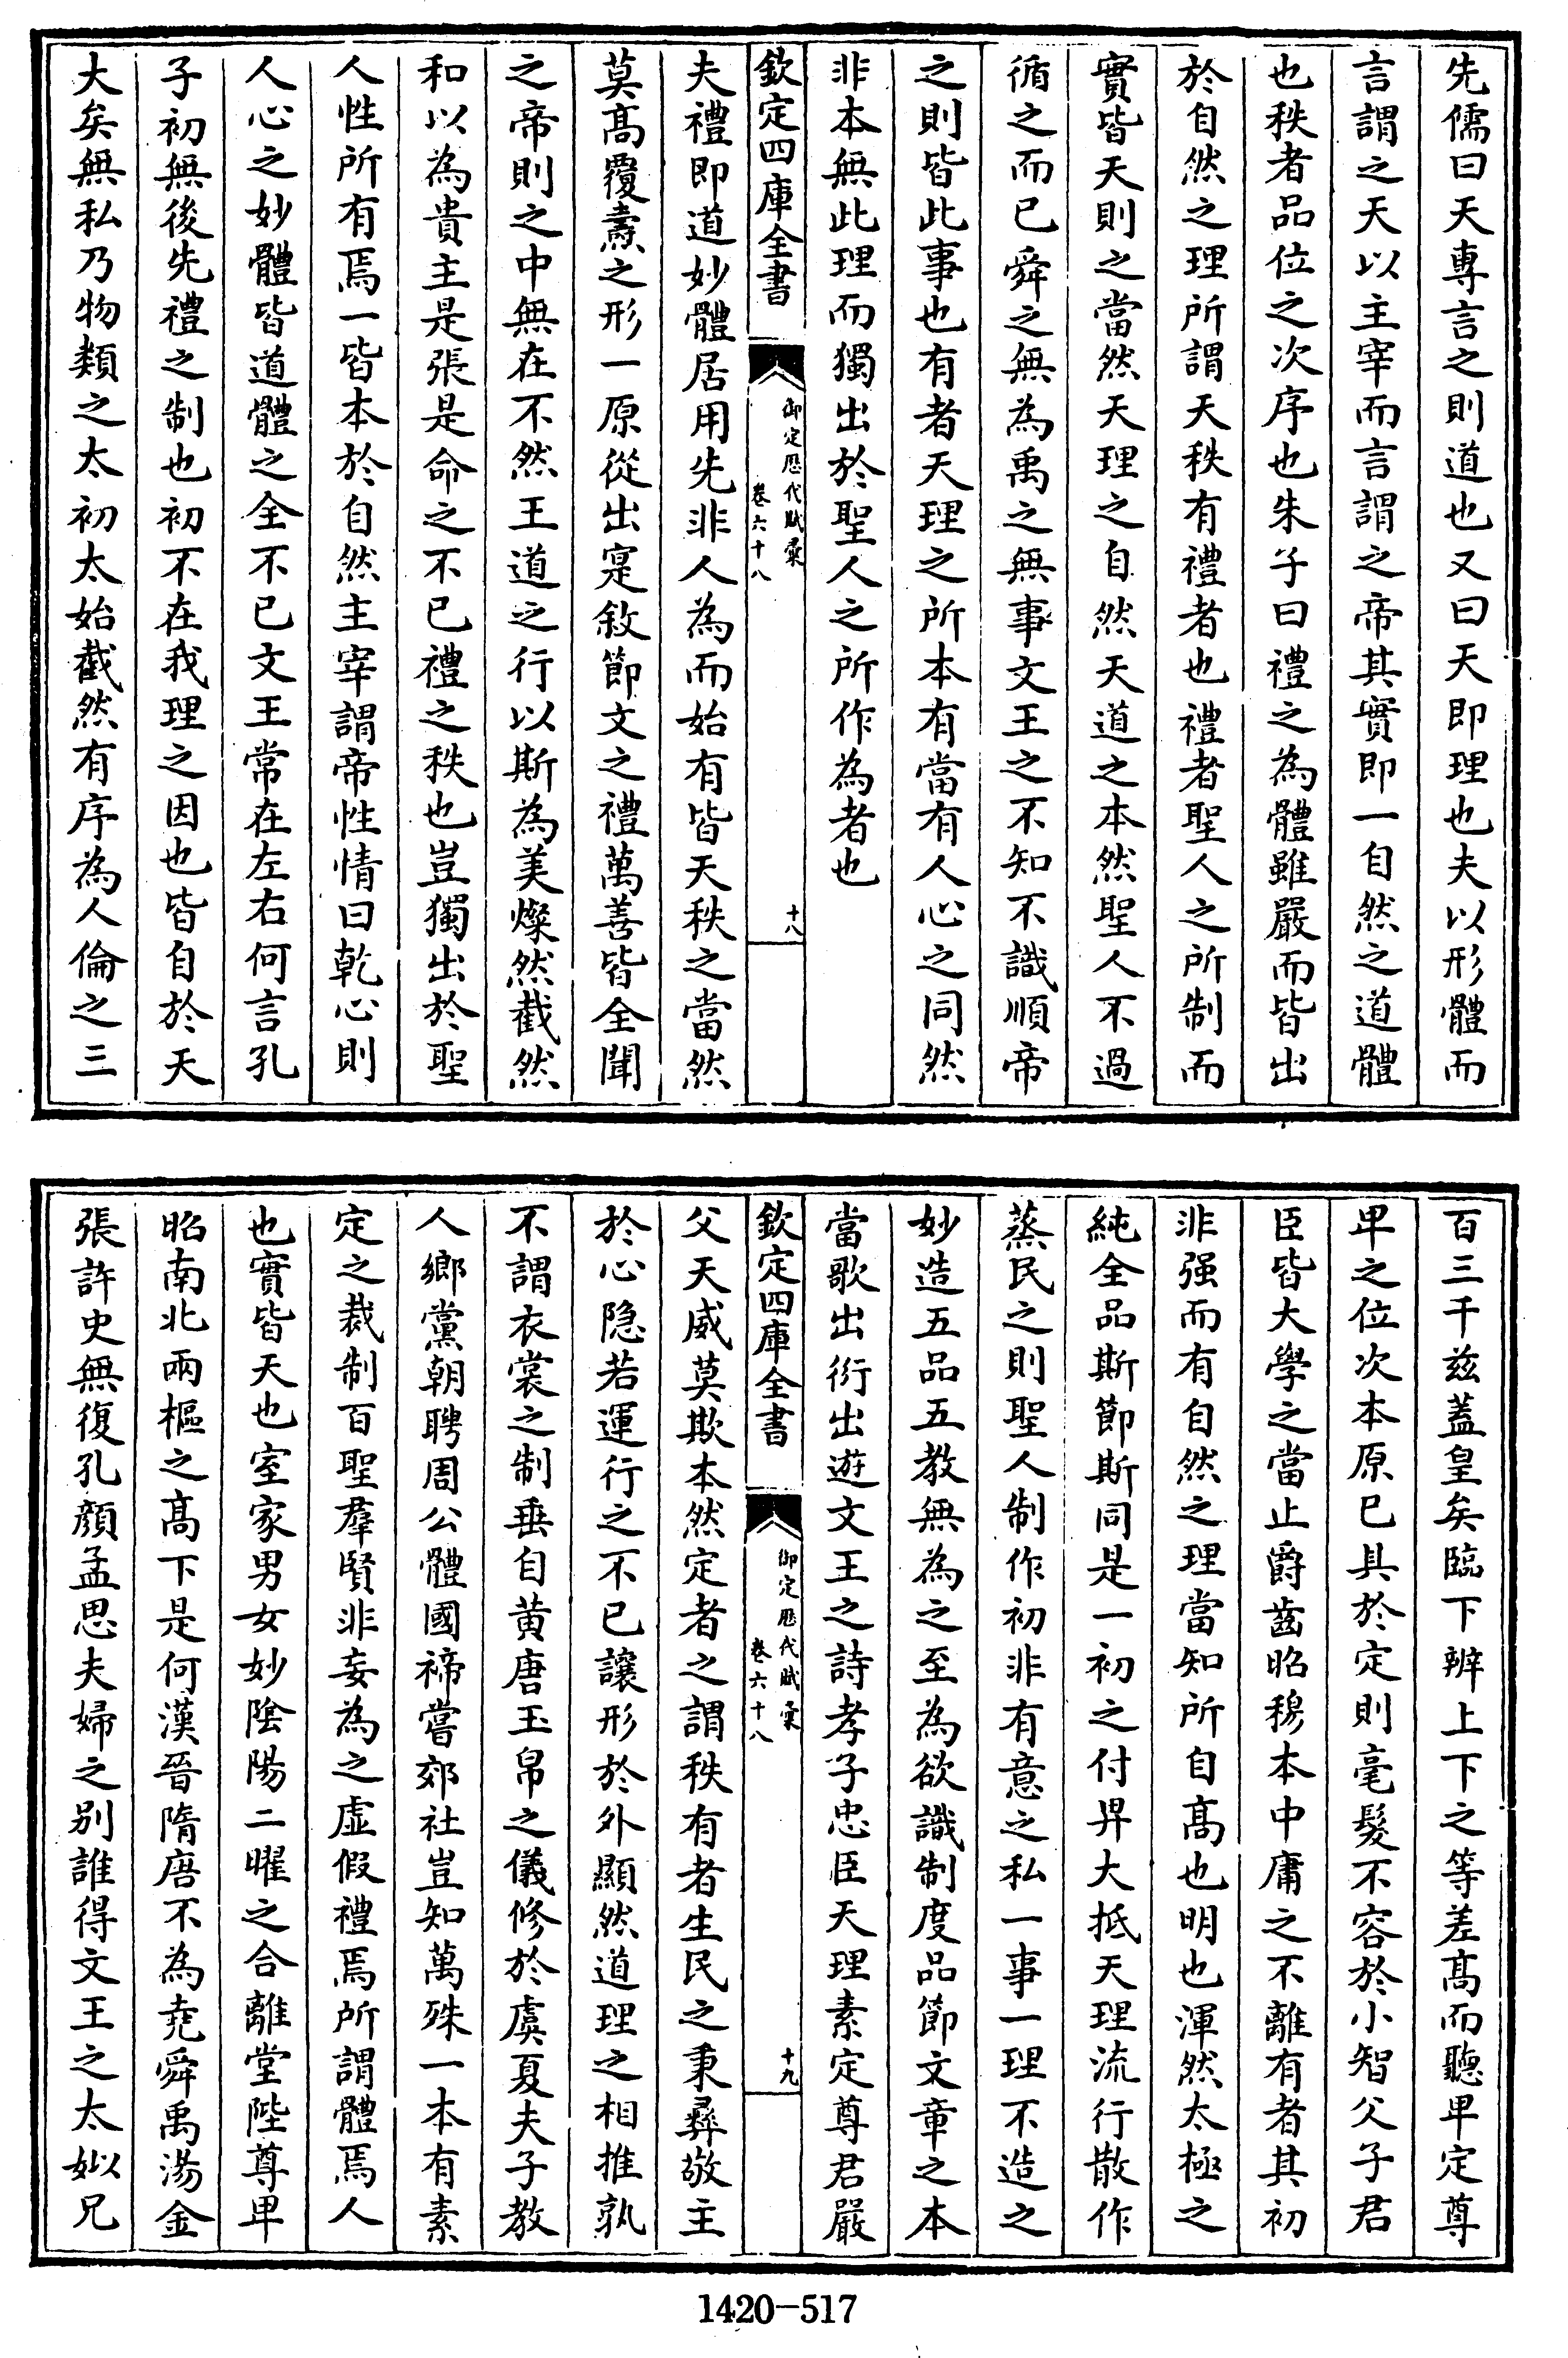 先儒曰天專言之則道也又曰天即理也夫以形體而
言謂之天以主宰而言謂之帝其實即一自然之道體
也秩者品位之次序也朱子曰禮之為體雖嚴而皆出
於自然之理所謂天秩有禮者也禮者聖人之所制而
實皆天則之當然天理之自然天道之本然聖人不過
循之而已舜之無為禹之無事文王之不知不識順帝
之則皆此事也有者天理之所本有當有人心之同然
非本無此理而獨出於聖人之所作為者也
欽定四庫全書
御定歷代賦彙
卷六十八
十八
夫禮即道妙體居用先非人為而始有皆天秩之當然
莫高覆燾之形一原從出寔敘節文之禮萬善皆全聞
之帝則之中無在不然王道之行以斯為美燦然截然
和以為貴主是張是命之不已禮之秩也豈獨出於聖
人性所有焉一皆本於自然主宰謂帝性情曰乾心則
人心之妙體皆道體之全不已文王常在左右何言孔
子初無後先禮之制也初不在我理之因也皆自於天
大矣無私乃物類之太初太始截然有序為人倫之三
百三千兹蓋皇矣臨下辨上下之等差高而聽卑定尊
卑之位次本原已具於定則毫髮不容於小智父子君
臣皆大學之當止爵齒昭穆本中庸之不離有者其初
非强而有自然之理當知所自高也明也渾然太極之
純全品斯節斯同是一初之付畀大抵天理流行散作
蒸民之則聖人制作初非有意之私一事一理不造之
妙造五品五教無為之至為欲識制度品節文章之本
當歌出衍出遊文王之詩孝子忠臣天理素定尊君嚴
欽定四庫全書
御定歷代賦彙
卷六十八
十九
父天威莫欺本然定者之謂秩有者生民之秉彝敬主
於心隐若運行之不已讓形於外顯然道理之相推孰
不謂衣裳之制垂自黄唐玉帛之儀修於虞夏夫子教
人鄉黨朝聘周公體國禘嘗郊社豈知萬殊一本有素
定之裁制百聖羣賢非妄為之虛假禮焉所謂體焉人
也實皆天也室家男女妙陰陽二曜之合離堂陛尊卑
昭南北兩樞之高下是何漢晉隋唐不為堯舜禹湯金
張許史無復孔顔孟思夫婦之别誰得文王之太姒兄
1420-517